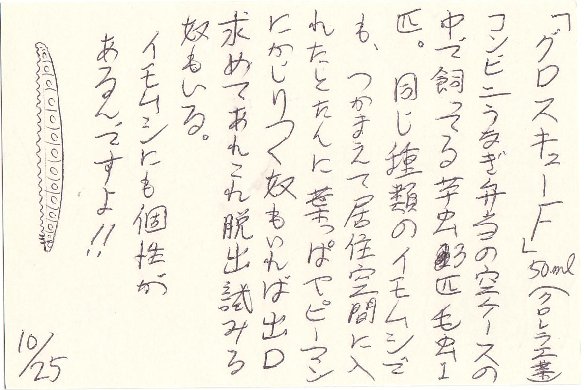 「グロスキューF」50ml(クロレラ工業)
コンビニうなぎ弁当の空ケースの
中で飼ってる芋虫3匹毛虫1
匹。同じ種類のイモムシで
も、つかまえて居住空間に入
れたとたんに葉っぱやピーマン
にかじりつく奴もいれば出口
求めてあれこれ脱出試みる
奴もいる。
イモムシにも個性が
あるんですよ!!
10/25